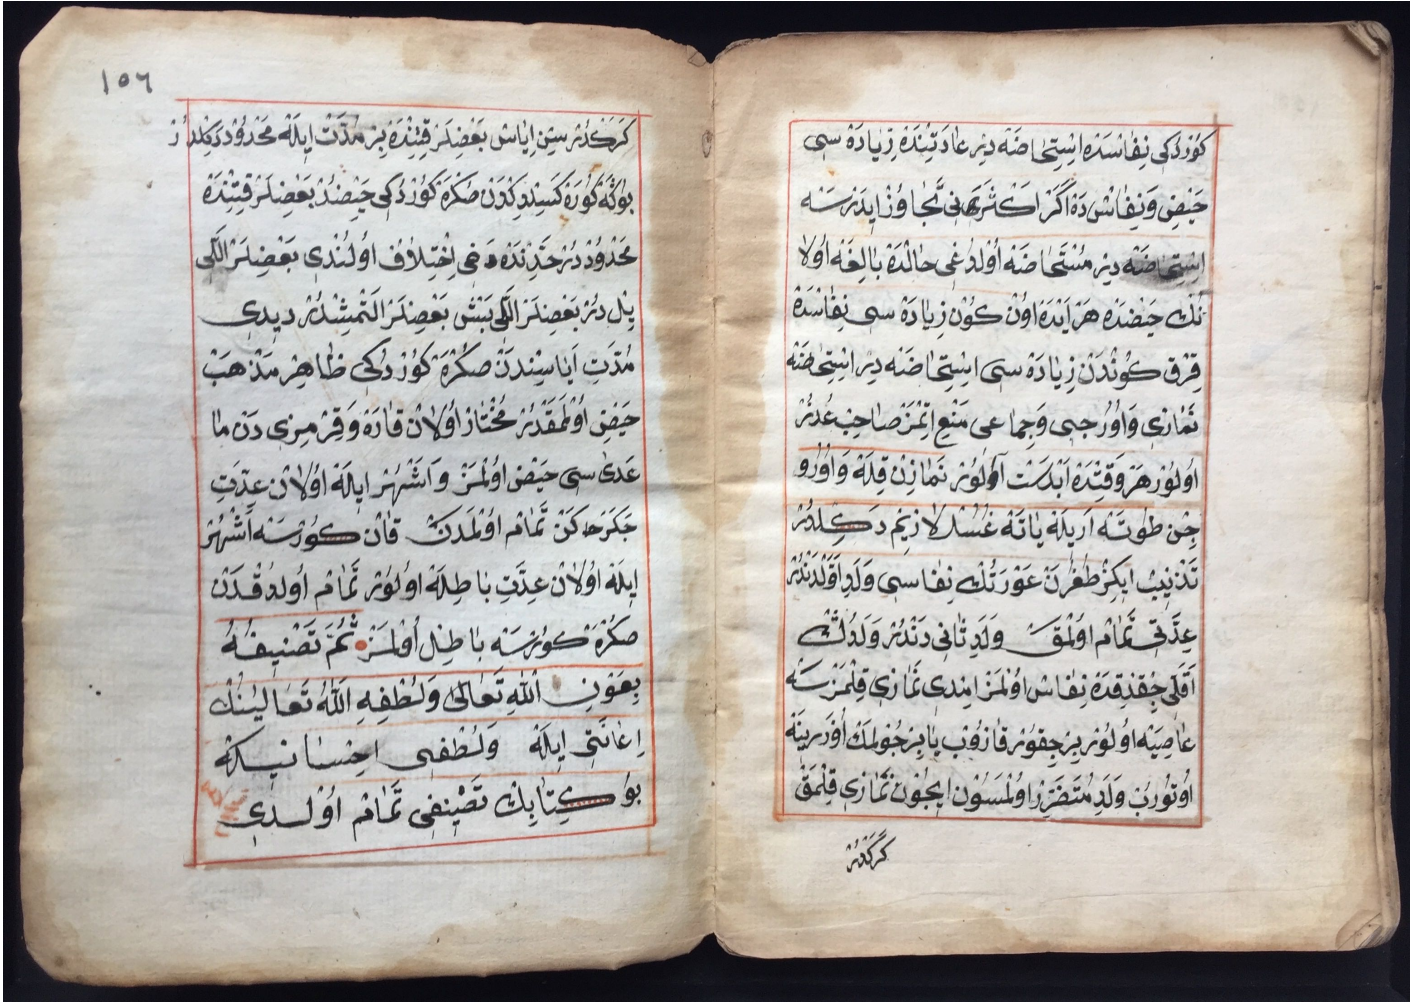 كوردكى نفاسده استحاضه دير عادتنده زياده سى
حيض ونفاس ده اگر اكثرى نى تجاوز ايدرسه
استحاضه دير مستحاضه اولدغى حالده بالغه اولا
نك حيضده هر آيده اون كون زياده سى نفاسده
قرق كوندن زياده سى استحاضه دير استحاضه
نمازى واورجى وجماعى منع اتمز صاحب عذر
اولور هر وقتده آبدست آلور نمازن قله واورو
جن طوته اريله ياته غسل لازم دكلدر
تذنيب ايكز طغرن عورتك نفاسى ولد اولدندر
عدتى تمام اولمق ولد ثانى دندر ولدك
اقلى چقدقده نفاس اولمز امدى نمازى قلمزسه
عاصيه اولور بر چقور قازوب يا بر چولمك اوزرينه
اوتوروب ولد متضرر اولمسون ايچون نمازى قلمق
كركدر
١٥٦
كركدر سن اياس بعضلر قتنده بر مدت ايله محدود دكلدر
بوكه كوره كسيلدكدن صكره كوردكى حيضدر بعضلر قتنده
محدوددر حدنده دخى اختلاف اولندى بعضلر اللى
يل در بعضلر اللى بش بعضلر التمشدر ديدى
مدت اياسندن صكره كوردكى ظاهر مذهب
حيض اولمقدر مختار اولان قاره وقرمزى دن ما
عدى سى حيض اولمز واشهر ايله اولان عدت
چكركن تمام اولمدن قان كورسه اشهر
ايله اولان عدت باطله اولور تمام اولدقدن
صكره كورسه باطل اولمز ثم تصنيفه
بعون الله تعالى ولطفه الله تعالينك
اعانتى ايله ولطفى احسانيله
بو كتابك تصنيفى تمام اولدى